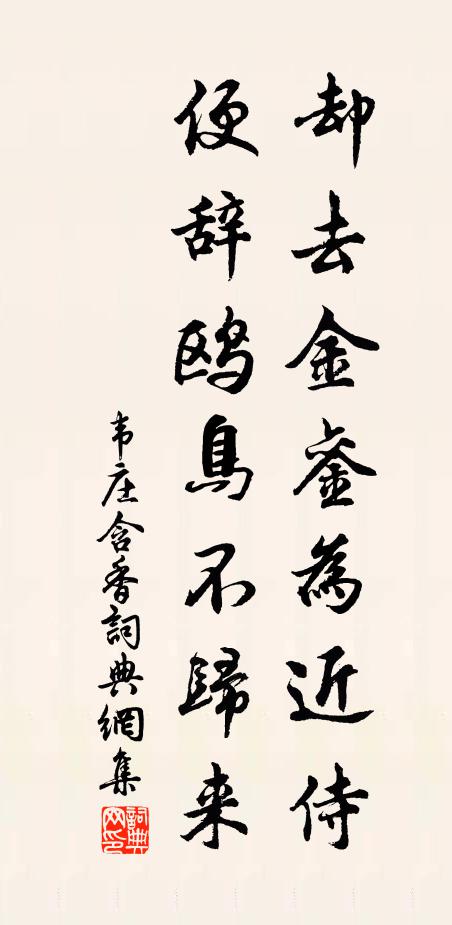 却去金銮為近侍
便辞鸥鳥不歸来
韦庄含香詞典網集
詞典网印